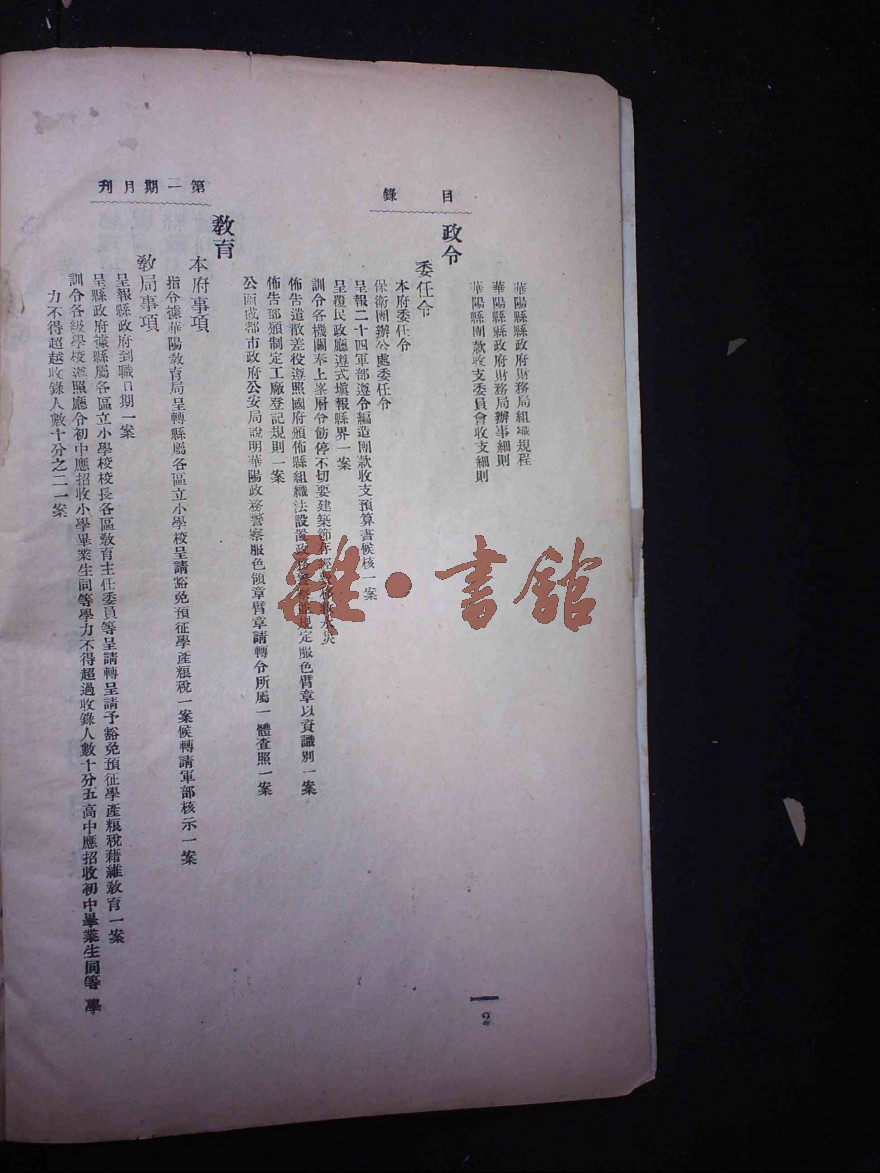 目錄
第一期月刊
華陽縣縣政府財務局組織規程
華陽縣縣政府財務局辦事細則
華陽縣團款收支委員會收支細則
政令
委任令
本府委任令
保衛團辦公處委任令
呈報二十四軍部遵令編造團款收支預算書候核一案
呈覆民政廳遵式填報縣界一案
訓令各機關奉上峯層令飭停不切要建築節存經水災
佈告遣散差役遵照國府頒佈縣組織法設置政規定服色臂章以資識別一案
佈告部頒制定工廠登記規則一案
公函成都市政府公安局說明華陽政務警察服色領章臂章請轉令所屬一體查照一案
教育
本府事項
指令據華陽敎育局呈轉縣屬各區立小學校呈請豁免預征學產粮稅一案候轉請軍部核示一案
敎局事項
呈報縣政府到職日期一案
呈縣政府據縣屬各區立小學校校長各區敎育主任委員等呈請轉呈請予豁免預征學產粮稅藉維敎育一案
訓令各級學校遵照廳令初中應招收小學畢業生同等學力不得超過收錄人數十分五高中應招收初中畢業生同等學
力不得超越收錄人數十分之二一案
2
雜·書館